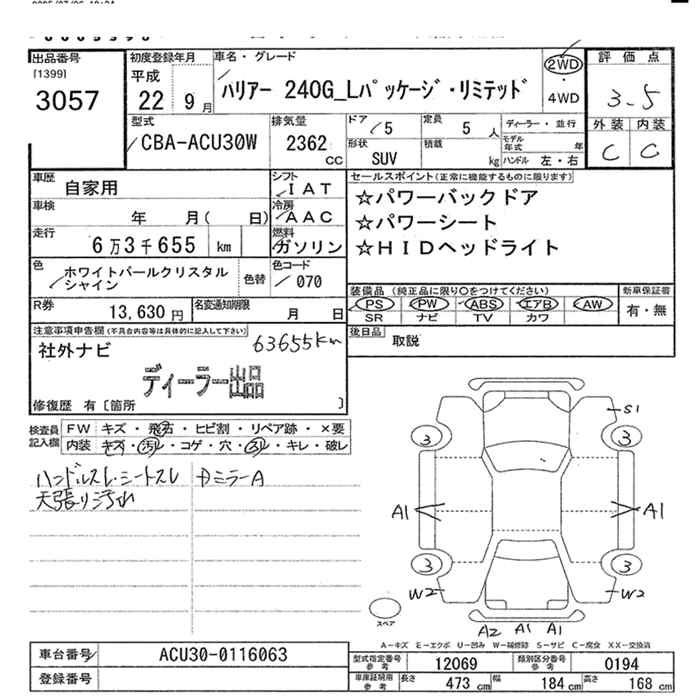 出品番号
[1399]
3057
初度登録年月
平成
22 9月
車名・グレード
ハリアー 240G_Lパッケージ・リミテッド
2WD
・
4WD
評価点
3.5
外装 内装
C C
型式
CBA-ACU30W
排気量
2362 CC
ドア
5
形状
SUV
定員
5 人
積載
kg
ディーラー・並行
モデル年式 年
ハンドル 左・右
車歴
自家用
シフト
IAT
車検
年 月( 日)
冷房
AAC
走行
6万3千655 km
燃料
ガソリン
色
ホワイトパールクリスタル
シャイン
色替
色コード
070
R券
13,630円
名変通知期限
月 日
セールスポイント(正常に機能するものに限ります)
☆パワーバックドア
☆パワーシート
☆HIDヘッドライト
装備品(純正品に限り〇をつけてください)
PS PW ABS エアB AW
SR ナビ TV カワ
新車保証書
有・無
後日品
取説
注意事項申告欄(不具合内容等は具体的に記入して下さい)
社外ナビ
63655km
ディーラー出品
修復歴 有〔箇所 〕
検査員
記入欄
FW キズ・飛石・ヒビ割・リペア跡・×要
内装 キズ・汚れ・コゲ・穴・スレ・キレ・破レ
ハンドルスレ・シートスレ
天張り汚れ
ミラーA
S1
3 3
A1 A1
3 3
W2 W2
スペア
A2 A1 A1
A-キズ E-エクボ U-凹み W-補修跡 S-サビ C-腐食 XX-交換済
車台番号
ACU30-0116063
登録番号
型式指定番号
参考
12069
類別区分番号
参考
0194
車庫証明用
参考
長さ 473 cm 幅 184 cm 高さ 168 cm